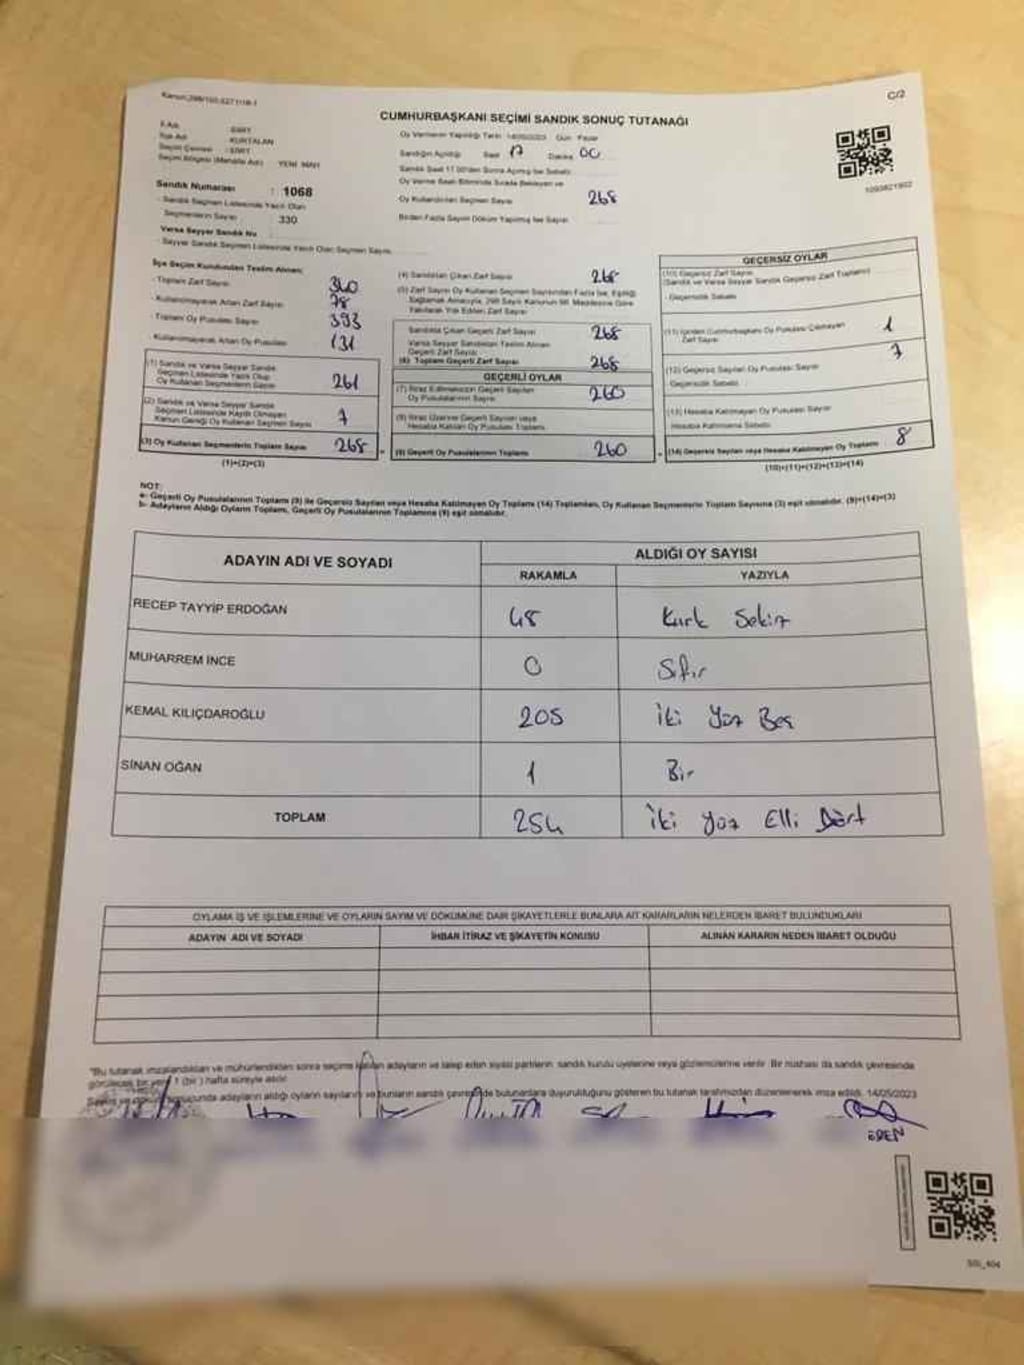 C/2
CUMHURBAŞKANI SEÇİMİ SANDIK SONUÇ TUTANAĞI
İl Adı SİİRT
İlçe Adı KURTALAN
Seçim Çevresi SİİRT
Seçim Bölgesi (Mahalle Adı) YENİ MAH.
Sandık Numarası : 1068
Sandık Seçmen Listesinde Yazılı Olan
Seçmenlerin Sayısı : 330
Varsa Seyyar Sandık No
Seyyar Sandık Seçmen Listesinde Yazılı Olan Seçmen Sayısı
Oy Vermenin Yapıldığı Tarih 14/05/2023 Gün Pazar
Sandığın Açıldığı Saat 17 Dakika 00
Sandık Saat 17.00'den Sonra Açılmış İse Sebebi
Oy Verme Saati Bitiminde Sırada Bekleyen ve
Oy Kullandırılan Seçmen Sayısı 268
Birden Fazla Sayım Döküm Yapılmış İse Sayısı
1093821902
İlçe Seçim Kurulundan Teslim Alınan:
Toplam Zarf Sayısı 340
Kullanılmayarak Artan Zarf Sayısı 78
Toplam Oy Pusulası Sayısı 393
Kullanılmayarak Artan Oy Pusulası 131
(1) Sandık ve Varsa Seyyar Sandık
Seçmen Listesinde Yazılı Olup
Oy Kullanan Seçmenlerin Sayısı 261
(2) Sandık ve Varsa Seyyar Sandık
Seçmen Listesinde Kayıtlı Olmayan
Kanun Gereği Oy Kullanan Seçmen Sayısı 7
(3) Oy Kullanan Seçmenlerin Toplam Sayısı 268
(1)+(2)=(3)
(4) Sandıktan Çıkan Zarf Sayısı 268
(5) Zarf Sayısı Oy Kullanan Seçmen Sayısından Fazla İse, Eşitliği
Sağlamak Amacıyla, 298 Sayılı Kanunun 98. Maddesine Göre
Yakılarak Yok Edilen Zarf Sayısı
Sandıkta Çıkan Geçerli Zarf Sayısı 268
Varsa Seyyar Sandıktan Teslim Alınan
Geçerli Zarf Sayısı
(6) Toplam Geçerli Zarf Sayısı 268
GEÇERLİ OYLAR
(7) İtiraz Edilmeksizin Geçerli Sayılan
Oy Pusulalarının Sayısı 260
(8) İtiraz Üzerine Geçerli Sayılan veya
Hesaba Katılan Oy Pusulası Toplamı
(9) Geçerli Oy Pusulalarının Toplamı 260
GEÇERSİZ OYLAR
(10) Geçersiz Zarf Sayısı
(Sandık ve Varsa Seyyar Sandık Geçersiz Zarf Toplamı)
Geçersizlik Sebebi
(11) İçinden Cumhurbaşkanı Oy Pusulası Çıkmayan
Zarf Sayısı 1
(12) Geçersiz Sayılan Oy Pusulası Sayısı 7
Geçersizlik Sebebi
(13) Hesaba Katılmayan Oy Pusulası Sayısı
Hesaba Katılmama Sebebi
(14) Geçersiz Sayılan veya Hesaba Katılmayan Oy Toplamı 8
(10)+(11)+(12)+(13)=(14)
NOT:
a- Geçerli Oy Pusulalarının Toplamı (9) ile Geçersiz Sayılan veya Hesaba Katılmayan Oy Toplamı (14) Toplamları, Oy Kullanan Seçmenlerin Toplam Sayısına (3) eşit olmalıdır. (9)+(14)=(3)
b- Adayların Aldığı Oyların Toplamı, Geçerli Oy Pusulalarının Toplamına (9) eşit olmalıdır.
ADAYIN ADI VE SOYADI ALDIĞI OY SAYISI
RAKAMLA YAZIYLA
RECEP TAYYİP ERDOĞAN 48 Kırk Sekiz
MUHARREM İNCE 0 Sıfır
KEMAL KILIÇDAROĞLU 205 İki Yüz Beş
SİNAN OĞAN 1 Bir
TOPLAM 254 İki Yüz Elli Dört
OYLAMA İŞ VE İŞLEMLERİNE VE OYLARIN SAYIM VE DÖKÜMÜNE DAİR ŞİKAYETLERLE BUNLARA AİT KARARLARIN NELERDEN İBARET BULUNDUKLARI
ADAYIN ADI VE SOYADI İHBAR İTİRAZ VE ŞİKAYETİN KONUSU ALINAN KARARIN NEDEN İBARET OLDUĞU
"Bu tutanak imzalandıktan ve mühürlendikten sonra seçime katılan adayların ve talep eden siyasi partilerin sandık kurulu üyelerine veya gözlemcilerine verilir. Bir nüshası da sandık çevresinde
görülecek bir yere 1 (bir) hafta süreyle asılır.
sonucunda adayların aldığı oyların sayılarını ve bunların sandık çevresinde bulunanlara duyurulduğunu gösteren bu tutanak tarafımızdan düzenlenerek imza edildi. 14/05/2023
EREN